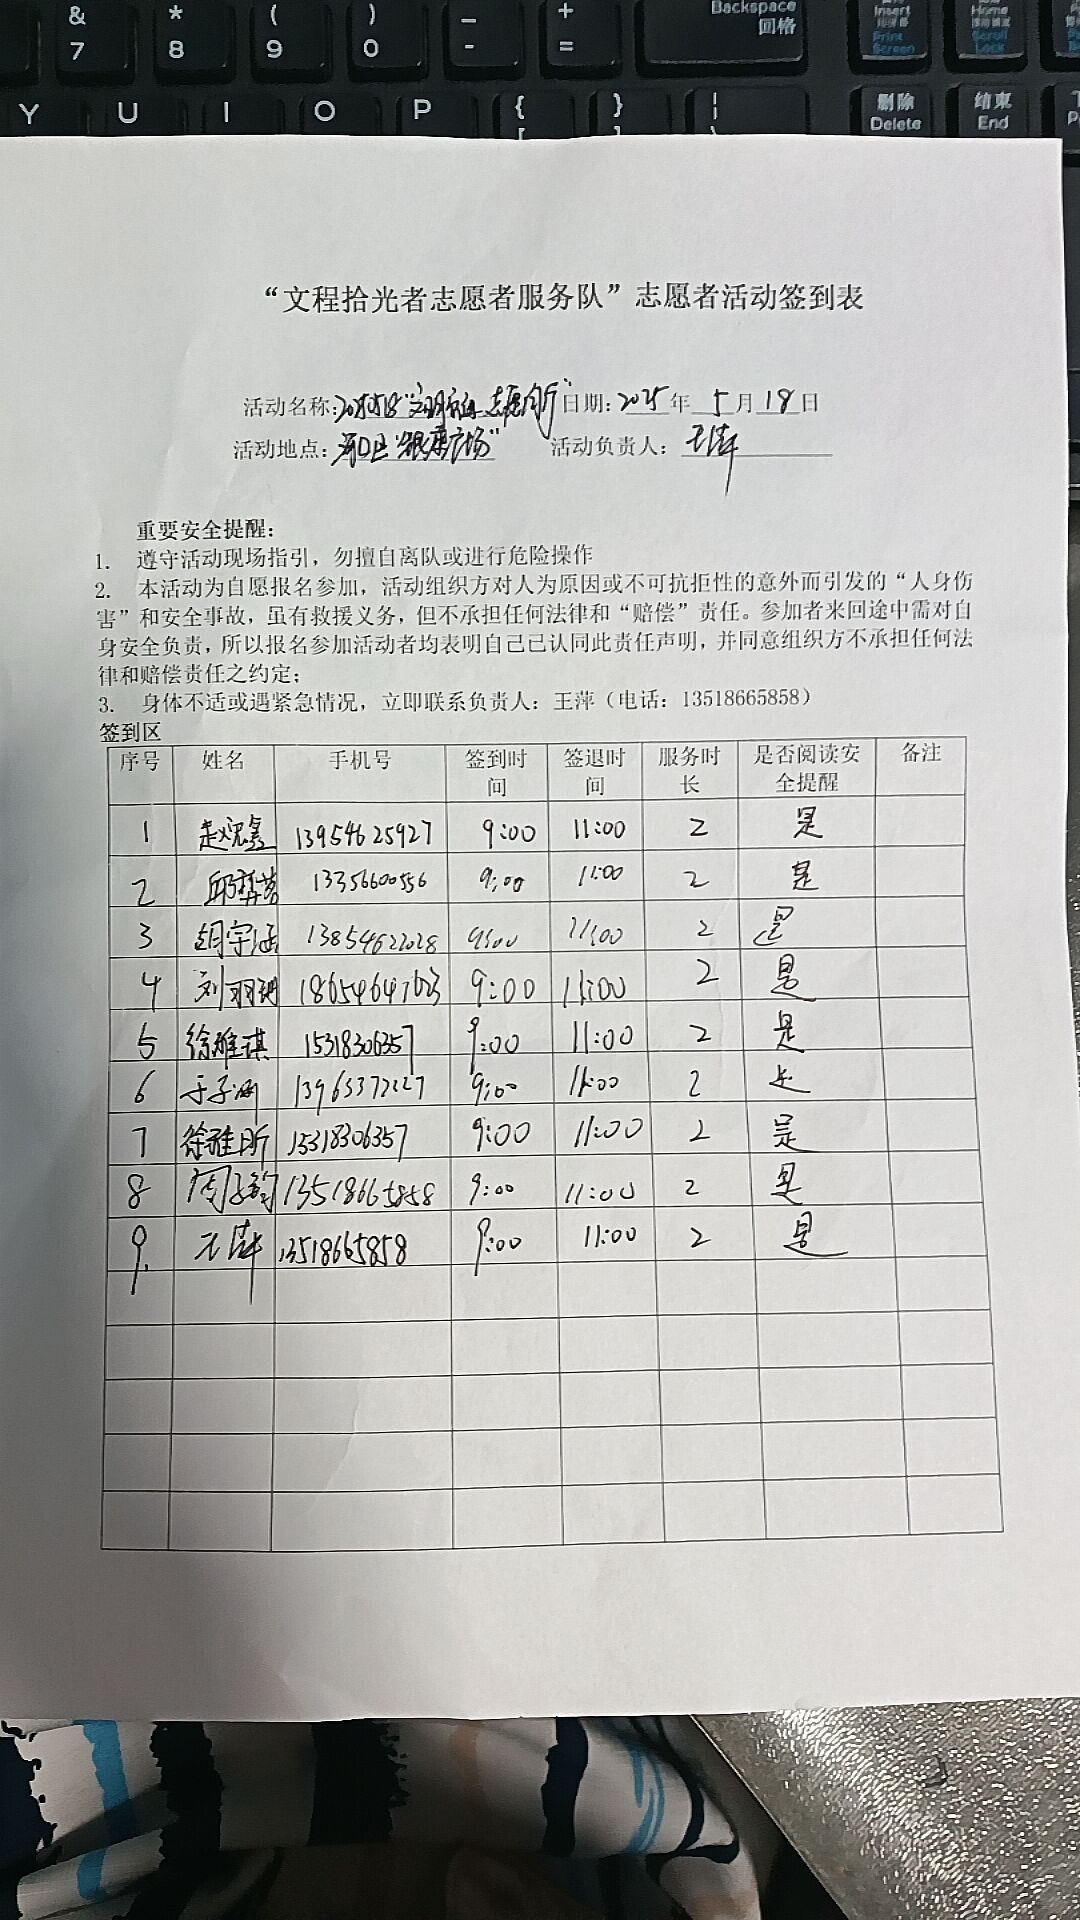 & * ( ) _ + Backspace Insert Home
7 8 9 0 - = 回格 Print Screen Scroll Lock
Y U I O P { } | 删除 结束
[ ] \ Delete End
“文程拾光者志愿者服务队”志愿者活动签到表
活动名称: 志愿同行” 日期: 2025 年 5 月 18 日
活动地点: 河口区“银 广场” 活动负责人: 王萍
重要安全提醒:
1. 遵守活动现场指引,勿擅自离队或进行危险操作
2. 本活动为自愿报名参加,活动组织方对人为原因或不可抗拒性的意外而引发的“人身伤
害”和安全事故,虽有救援义务,但不承担任何法律和“赔偿”责任。参加者来回途中需对自
身安全负责,所以报名参加活动者均表明自己已认同此责任声明,并同意组织方不承担任何法
律和赔偿责任之约定;
3. 身体不适或遇紧急情况,立即联系负责人:王萍(电话:13518665858)
签到区
序号 姓名 手机号 签到时间 签退时间 服务时长 是否阅读安全提醒 备注
1 赵 鑫 13954625927 9:00 11:00 2 是
2 邱 13356600556 9:00 11:00 2 是
3 胡宇涵 13854622028 9:00 11:00 2 是
4 刘羽 9:00 11:00 2 是
5 徐雅琪 15318306357 9:00 11:00 2 是
6 于子涵 9:00 11:00 2 是
7 徐雅昕 15318306357 9:00 11:00 2 是
8 周子韵 13518665858 9:00 11:00 2 是
9. 王萍 13518665858 9:00 11:00 2 是